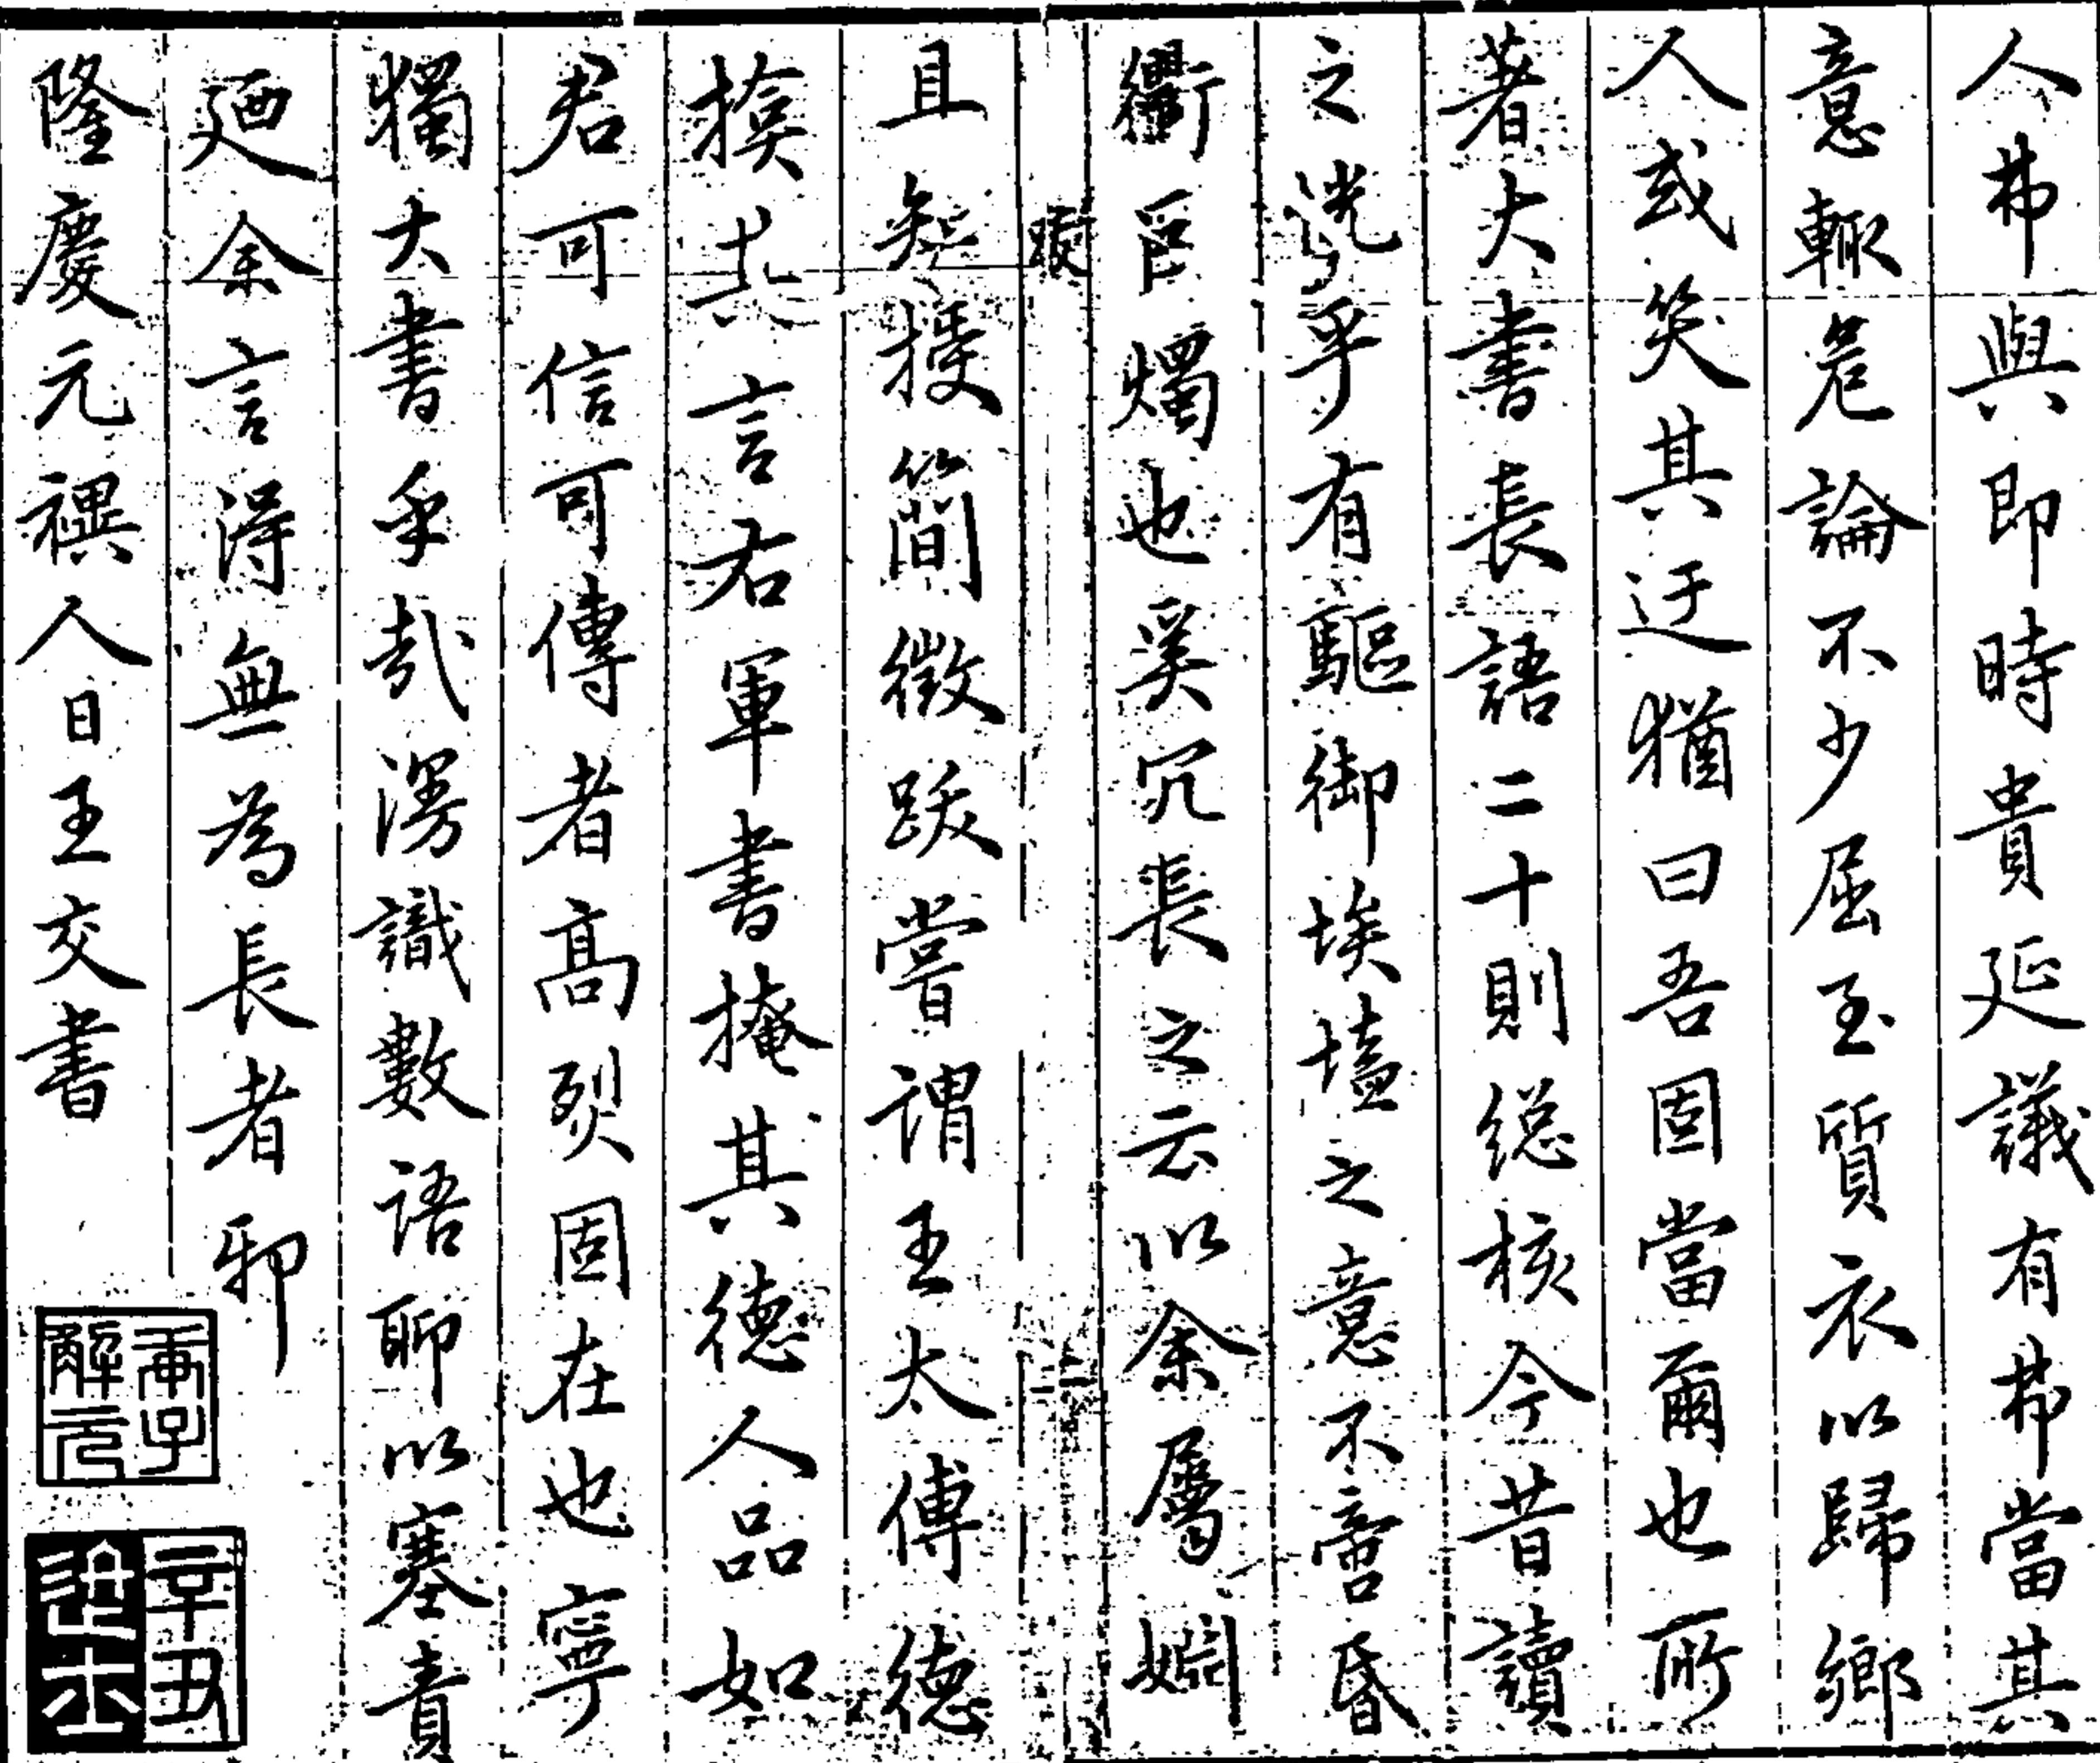 人弗與即時貴延議有弗當其
意輙危論不少屈至質衣以歸鄉
人或笑其迂猶曰吾固當爾也所
著大書長語二十則総核今昔讀
之洸乎有驅御埃壒之意不啻昏
衢巨燭也奚冗長之云以余屬嫺
跋
二
且知授簡徵跋嘗謂王太傅德
掞其言右軍書掩其德人品如
君可信可傳者高烈固在也寧
獨大書乎哉漫識數語聊以塞責
廼余言得無為長者邪
隆慶元禩人日王交書
庚子解元
辛丑進士